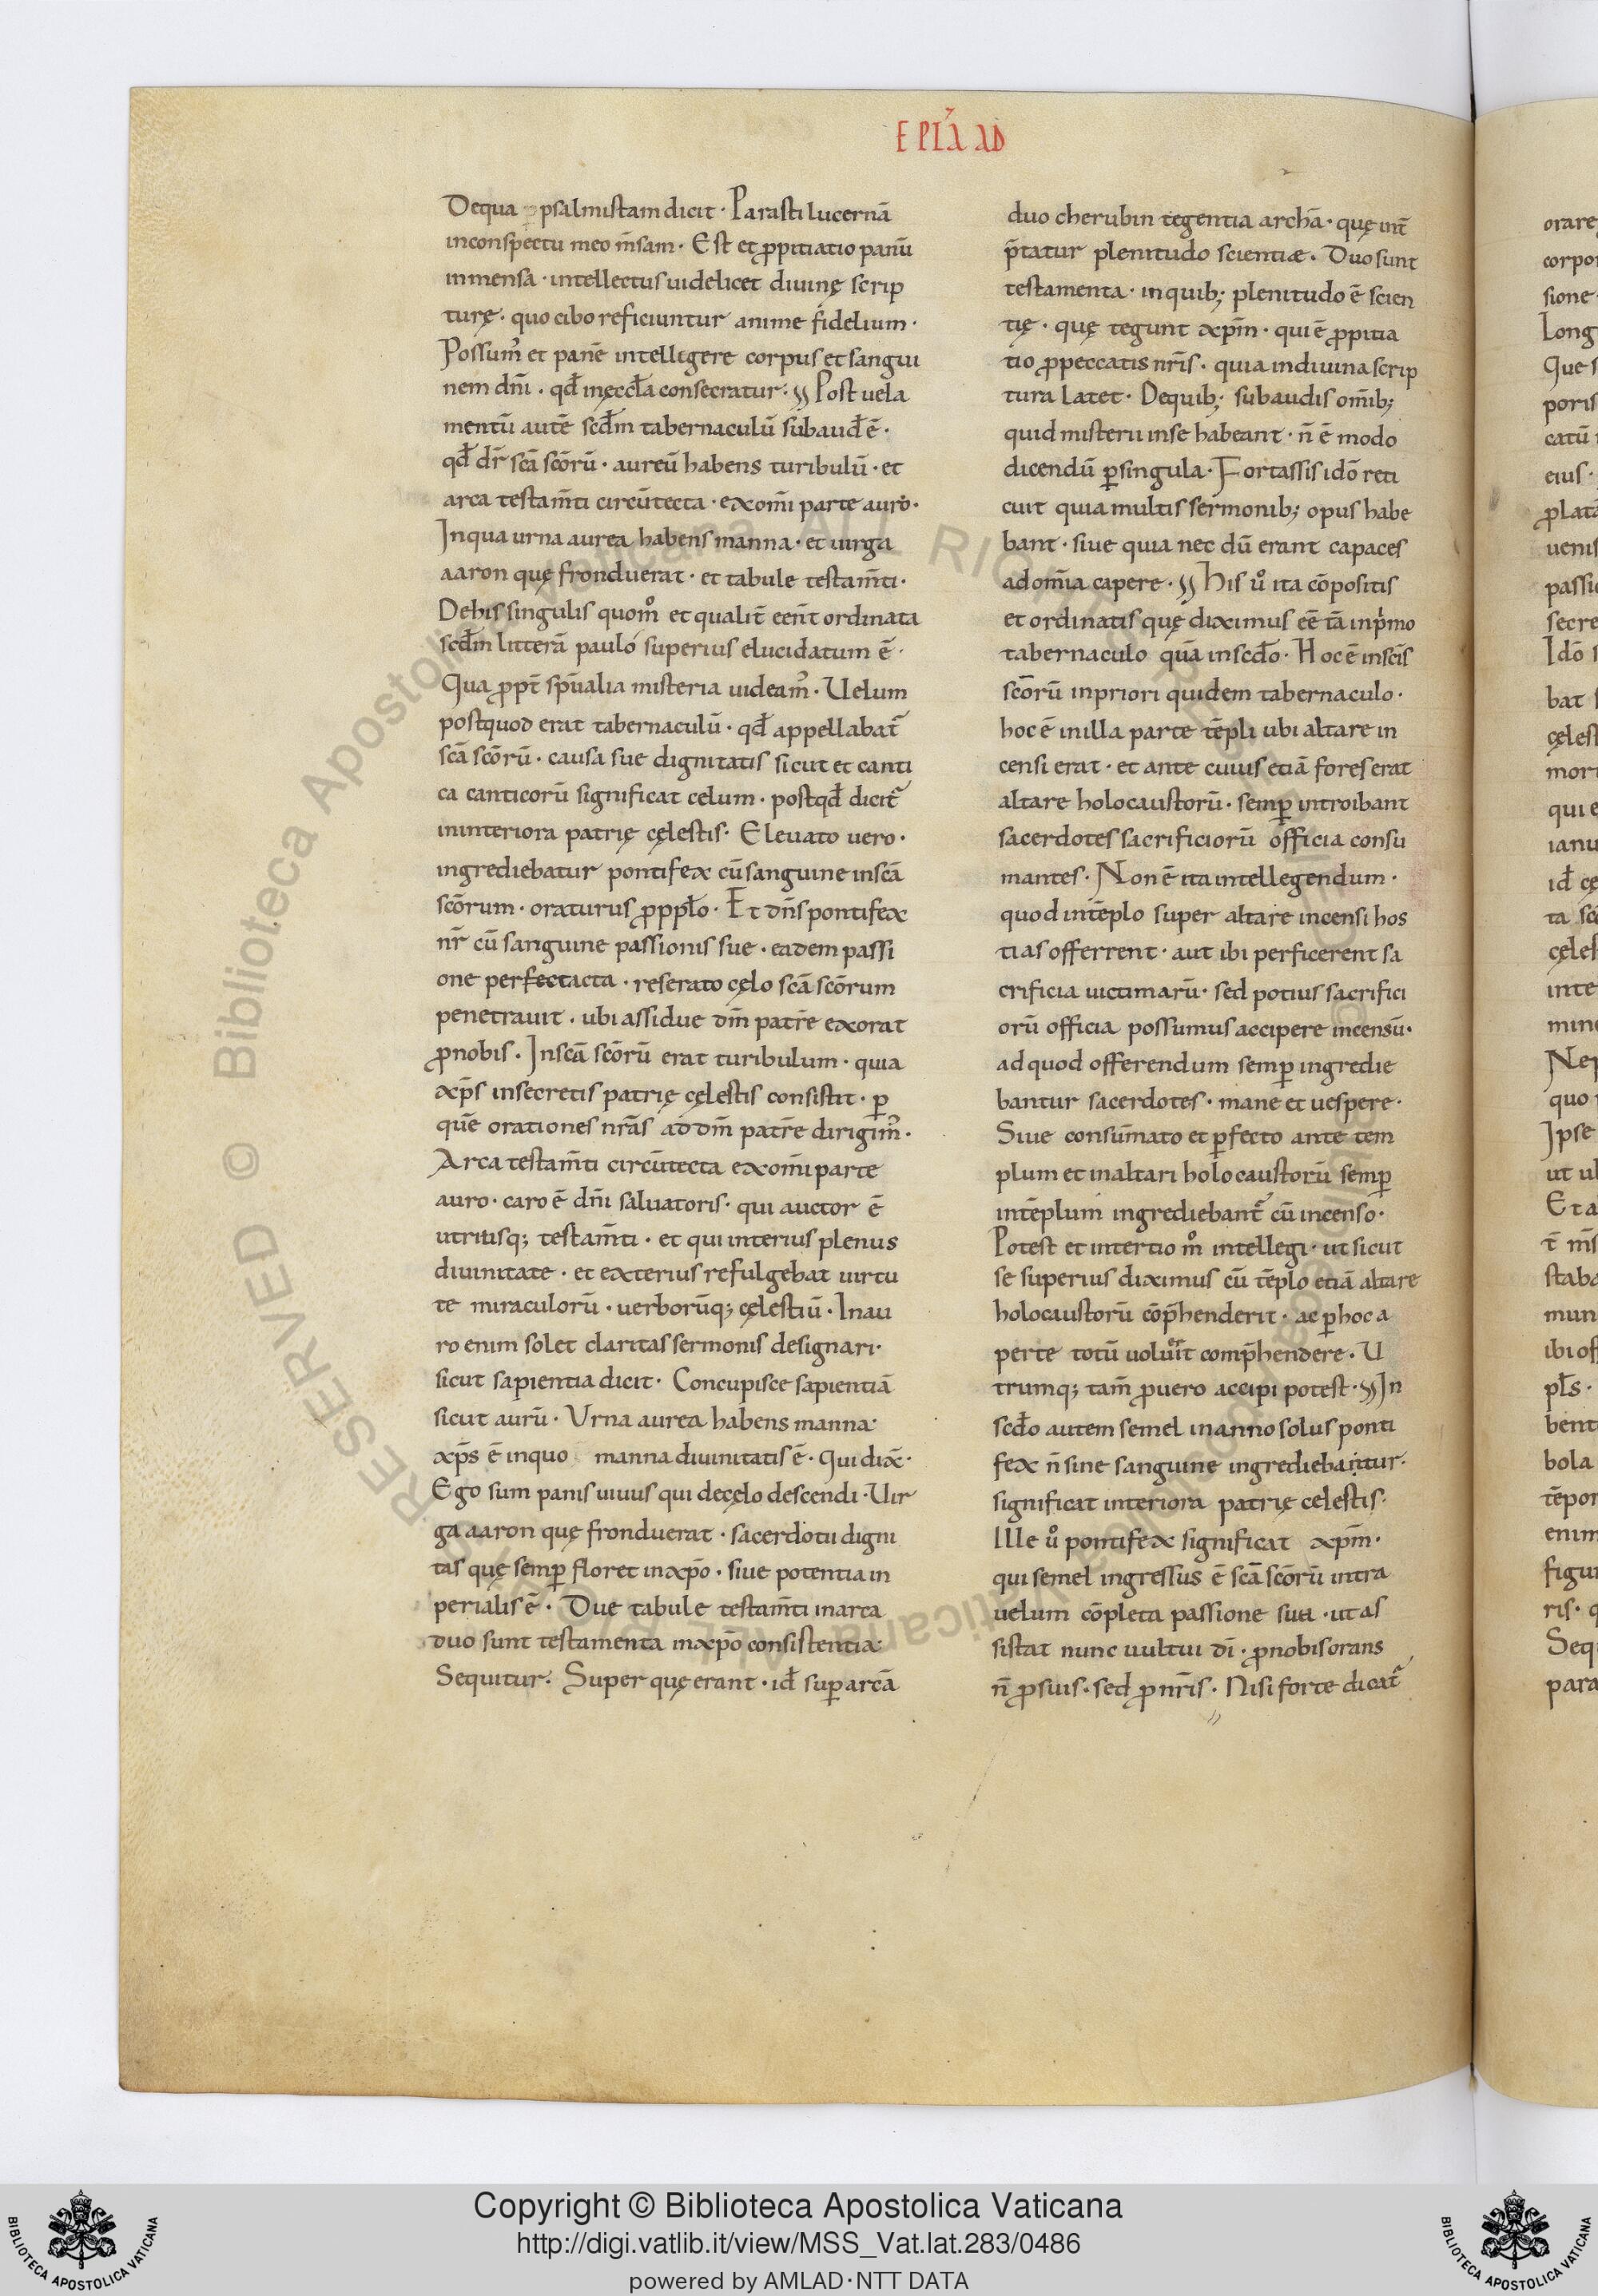 EPLĀ AD
Dequa psalmistam dicit · Parasti lucernā
inconspectu meo m̄sam · Est et ꝓpitiatio panū
inmensa · intellectus uidelicet diuinę scrip
turę · quo cibo reficiuntur anime fidelium ·
Possum᾽ et pane intelligere corpus et sangui
nem dn̄i · qđ inęccła consecratur · Post uela
mentū autē scđm tabernaculū subauđ ē ·
qđ dr̄ scā scōrū · aureū habens turibulū · et
arca testam̄ti circūtecta · exom̄i parte auro ·
Inqua urna aurea habens manna · et uirga
aaron quę fronduerat · et tabule testam̄ti ·
Dehis singulis quom̊ et qualit̄ een̄t ordinata
scđm litterā pauló superius elucidatum ē ·
Qua ꝓpt̄ sp̄ualia misteria uideam᾽ · Uelum
postquod erat tabernaculū · qđ appellabat᷑
scā scōrū · causa sue dignitatis sicut et canti
ca canticorū significat celum · postqđ dicit᷑
ininteriora patrię cęlestis · Eleuato uero ·
ingrediebatur pontifex cū sanguine inscā
scōrum · oraturus ꝓ ppło · Et dn̄s pontifex
nr̄ cū sanguine passionis sue · eadem passi
one perfectacta · reserato cęlo scā scōrum
penetrauit · ubi assidue dm̄ patrē exorat
ꝓnobis · Inscā scōrū erat turibulum · quia
xp̄s insecretis patrię cęlestis consistit · ꝑ
quē orationes nrās ad dm̄ patrē dirigim᾽ ·
Arca testam̄ti circūtecta exom̄i parte
auro · caro ē dn̄i saluatoris · qui auctor ē
utriusq; testam̄ti · et qui interius plenus
diuinitate · et exterius refulgebat uirtu
te miraculorū · uerborūq; cęlestiū · Inau
ro enim solet claritas sermonis designari ·
sicut sapientia dicit · Concupisce sapientiā
sicut aurū · Urna aurea habens manna ·
xp̄s ē inquo manna diuinitatis ē · Qui dix̄ ·
Ego sum panis uiuus qui decęlo descendi · Uir
ga aaron quę fronduerat · sacerdotii digni
tas quę semꝑ floret inxp̄o · siue potentia in
perialis ē · Due tabule testam̄ti inarca
duo sunt testamenta inxp̄o consistentia ·
Sequitur · Super quę erant · iđ suꝑ arcā
duo cherubin tegentia archā · quę int̄
p̄tatur plenitudo scientiæ · Duo sunt
testamenta · inquib; plenitudo ē scien
tię · quę tegunt xp̄m · qui ē ꝓpitia
tio ꝓpeccatis nr̄is · quia indiuina scrip
tura latet · Dequib; subaudis om̄ib;
quid misterii inse habeant · n̄ ē modo
dicendū ꝑsingula · Fortassis idō reti
cuit quia multis sermonib; opus habe
bant · siue quia nec dū erant capaces
adom̄ia capere · His ů ita cōpositis
et ordinatis quę diximus eē tā inp̄mo
tabernaculo quā inscđo · Hoc ē inscīs
scōrū inpriori quidem tabernaculo ·
hoc ē inilla parte tēpli ubi altare in
censi erat · et ante cuius etiā fores erat
altare holocaustorū · semꝑ introibant
sacerdotes sacrificiorū officia consu
mantes · Non ē ita intellegendum ·
quod intēplo super altare incensi hos
tias offerrent · aut ibi perficerent sa
crificia uictimarū · sed potius sacrifici
orū officia possumus accipere incensū ·
adquod offerendum semꝑ ingredie
bantur sacerdotes · mane et uespere ·
Siue consūmato et ꝑfecto ante tem
plum et inaltari holocaustorū semꝑ
intēplum ingrediebant᷑ cū incenso ·
Potest et intertio m̊ intellegi · ut sicut
se superius diximus cū tēplo etiā altare
holocaustorū cōp̄henderit · ac ꝑhoc a
perte totū uoluerit comp̄hendere · U
trumq; tam̄ ꝓuero accipi potest · In
scđo autem semel inanno solus ponti
fex n̄ sine sanguine ingrediebantur ·
significat interiora patrię celestis ·
Ille ů pontifex significat xp̄m ·
qui semel ingressus ē scā scōrū intra
uelum cōpleta passione sua · ut as
sistat nunc uultui dī · ꝓnobis orans
n̄ ꝓsuis · sed ꝓnr̄is · Nisi forte dicat᷑
orare
corpo
sione
Long
Que s
poris
catū
eius ·
ꝓlatā
uenis
passi
secre
Idō s
bat
cęles
mort
qui e
ianu
iđ cę
ta sc
cęles
inte
mino
Neq
quo
Ipse
ut ul
Et a
t̄ m̄s
staba
mun
ibi of
pl̄s ·
bent
bola
tēpor
enim
figur
ris · q
Sequ
para
© Biblioteca Apostolica Vaticana ALL RIGHTS RESERVED
Copyright © Biblioteca Apostolica Vaticana
http://digi.vatlib.it/view/MSS_Vat.lat.283/0486
powered by AMLAD·NTT DATA
BIBLIOTECA APOSTOLICA VATICANA
BIBLIOTECA APOSTOLICA VATICANA